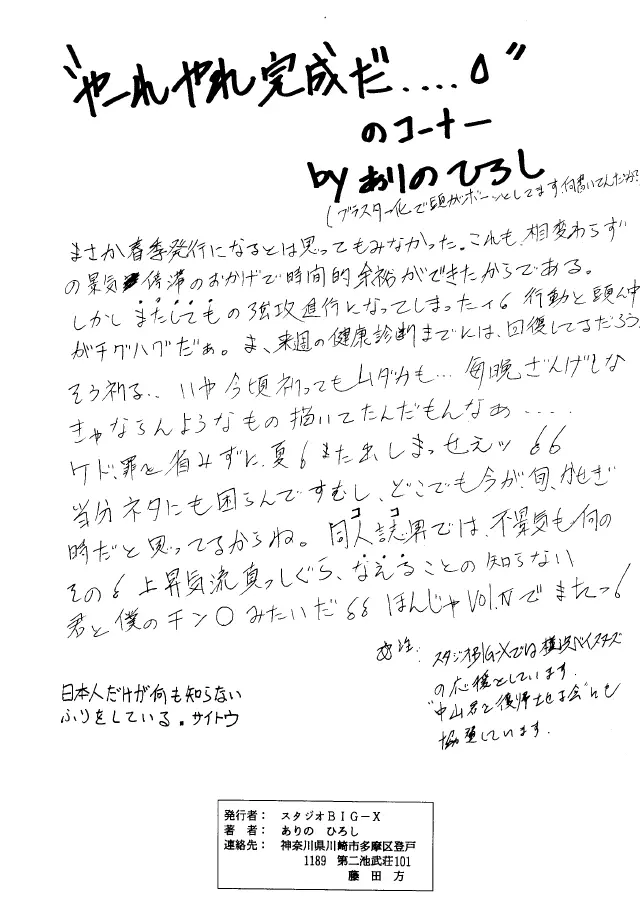 "やーれやれ完成だ....〇"
のコーナー
by ありのひろし
(ブラスター化で頭がボーッとしてます、何書いてんだか?
まさか春季発行になるとは思ってもみなかった。これも、相変わらず
の景気停滞のおかげで時間的余裕ができたからである。
しかしまたしてもの強攻進行になってしまったィ6 行動と頭ん中
がチグハグだぁ。ま、来週の健康診断までには、回復してるだろう。
そう祈る.. いや今頃祈ってもムダかも… 毎晩ざんげしな
きゃならんようなもの描いてたんだもんなぁ.....
ケド、罪を省みずに、夏もまた出しまっせぇッ 66
当分ネタにも困らんですむし、どこでも今が、旬、かせぎ
時だと思ってるからね。同人誌界では、不景気も何の
ココ
その6 上昇気流真っしぐら、なえることの知らない
君と僕のチン〇みたいだ 66 ほんじゃVol.Ⅳでまたっ6
スタジオBIG-Xでは横浜ベイスターズ
の応援としています.
"中山君を復帰させる会"にも
協賛しています.
日本人だけが何も知らない
ふりをしている。サイトウ
発行者： スタジオＢＩＧ－Ｘ
著　者： ありの　ひろし
連絡先： 神奈川県川崎市多摩区登戸
1189　第二池武荘101
藤　田　方